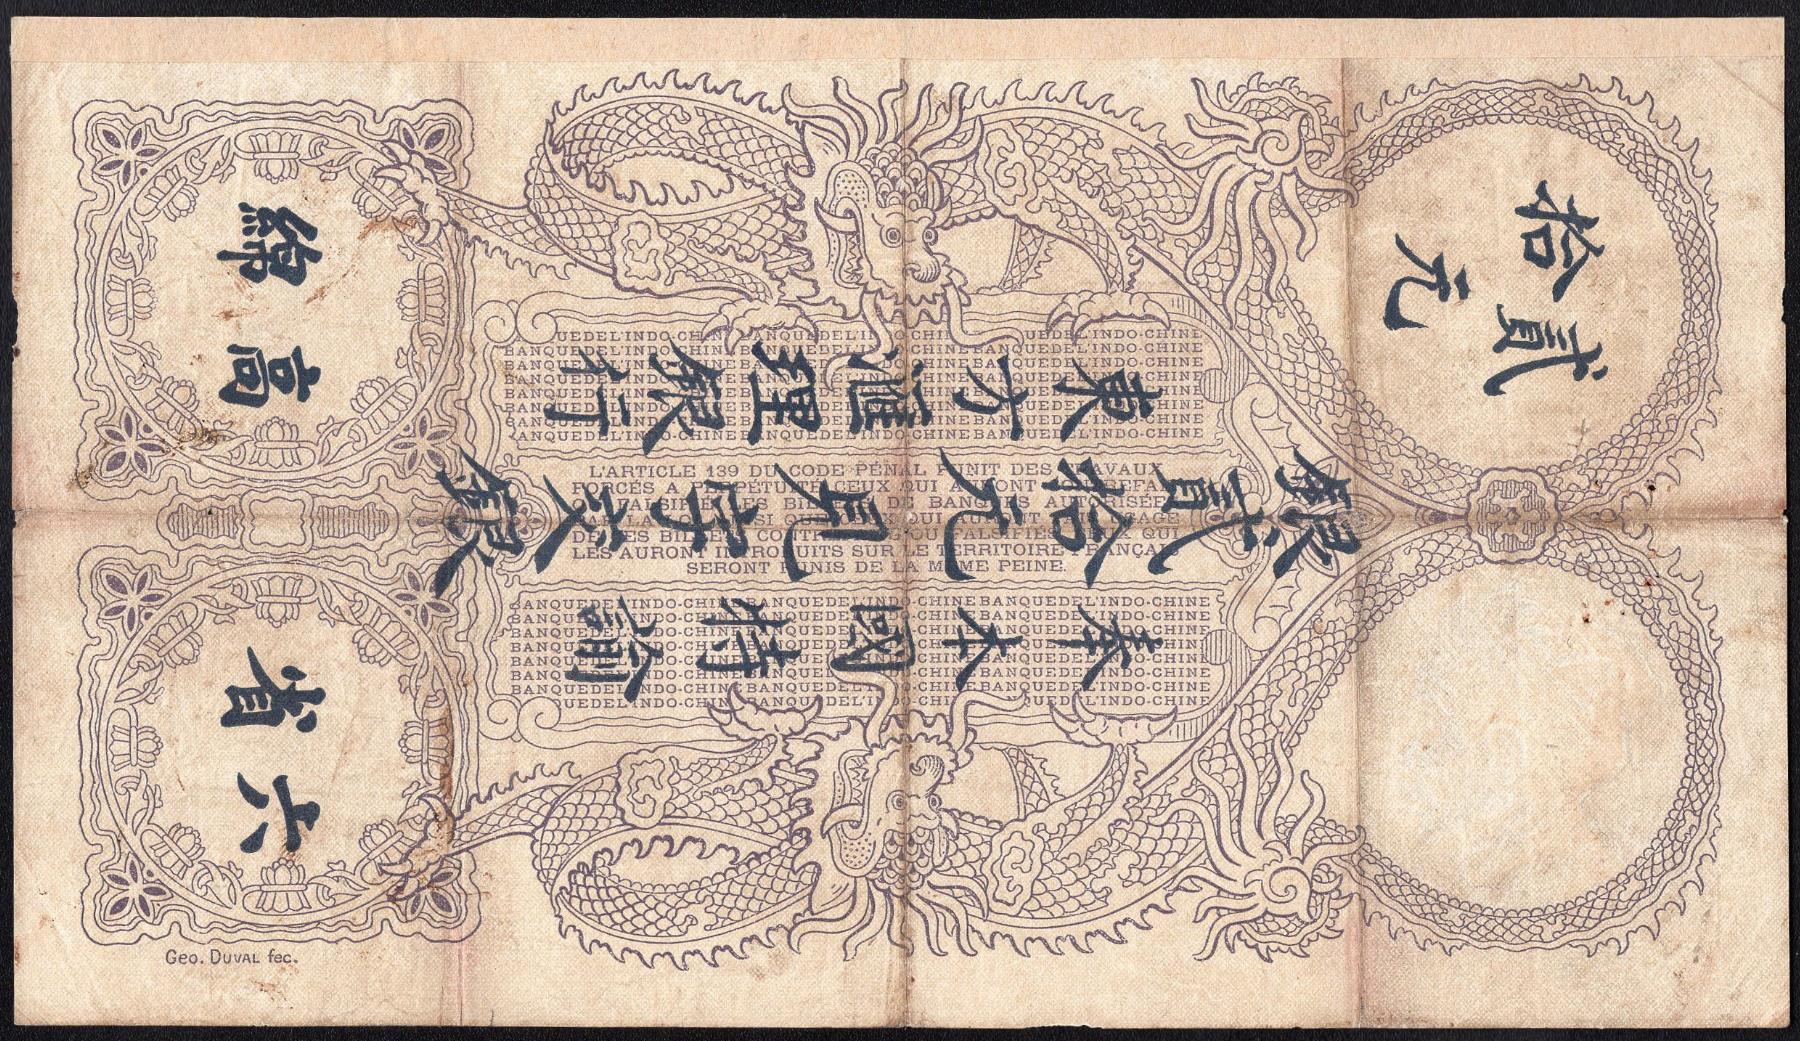 貳拾元
奉本國特諭
銀貳拾元見字交銀
東方滙理銀行
六省
高綿
UEDEL'INDO-CHINEBANQUEDEL'INDO-CHINEBANQUEDEL'INDO-CHINE
BANQUEDEL'INDO-CHINEBANQUEDEL'INDO-CHINEBANQUEDEL'INDO-CHINE
BANQUEDEL'INDO-CHINEBANQUEDEL'INDO-CHINEBANQUEDEL'INDO-CHINE
BANQUEDEL'INDO-CHINEBANQUEDEL'INDO-CHINEBANQUEDEL'INDO-CHINE
BANQUEDEL'INDO-CHINEBANQUEDEL'INDO-CHINEBANQUEDEL'INDO-CHINE
BANQUEDEL'INDO-CHINEBANQUEDEL'INDO-CHINEBANQUEDEL'INDO-CHINE
BANQUEDEL'INDO-CHINEBANQUEDEL'INDO-CHINEBANQUEDEL'INDO-CHINE
ANQUEDEL'INDO-CHINEBANQUEDEL'INDO-CHINEBANQUEDEL'INDO-CHINE
L'ARTICLE 139 DU CODE PÉNAL PUNIT DES TRAVAUX
FORCÉS A PERPÉTUITÉ CEUX QUI AURONT CONTREFAIT
OU FALSIFIÉ LES BILLETS DE BANQUES AUTORISÉES
PAR LA LOI, AINSI QUE CEUX QUI AURONT FAIT USAGE
DE CES BILLETS CONTREFAITS OU FALSIFIÉS. CEUX QUI
LES AURONT INTRODUITS SUR LE TERRITOIRE FRANÇAIS
SERONT PUNIS DE LA MÊME PEINE.
ANQUEDEL'INDO-CHINEBANQUEDEL'INDO-CHINEBANQUEDEL'INDO-CHINE
BANQUEDEL'INDO-CHINEBANQUEDEL'INDO-CHINEBANQUEDEL'INDO-CHINE
BANQUEDEL'INDO-CHINEBANQUEDEL'INDO-CHINEBANQUEDEL'INDO-CHINE
BANQUEDEL'INDO-CHINEBANQUEDEL'INDO-CHINEBANQUEDEL'INDO-CHINE
BANQUEDEL'INDO-CHINEBANQUEDEL'INDO-CHINEBANQUEDEL'INDO-CHINE
BANQUEDEL'INDO-CHINEBANQUEDEL'INDO-CHINEBANQUEDEL'INDO-CHINE
BANQUEDEL'INDO-CHINEBANQUEDEL'INDO-CHINEBANQUEDEL'INDO-CHINE
UEDEL'INDO-CHINEBANQUEDEL'INDO-CHINEBANQUEDEL'INDO-CHINE
Geo. DUVAL fec.